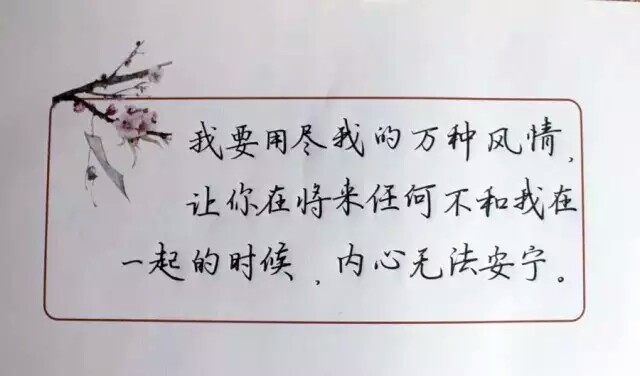 我要用尽我的万种风情,
让你在将来任何不和我在
一起的时候,内心无法安宁。